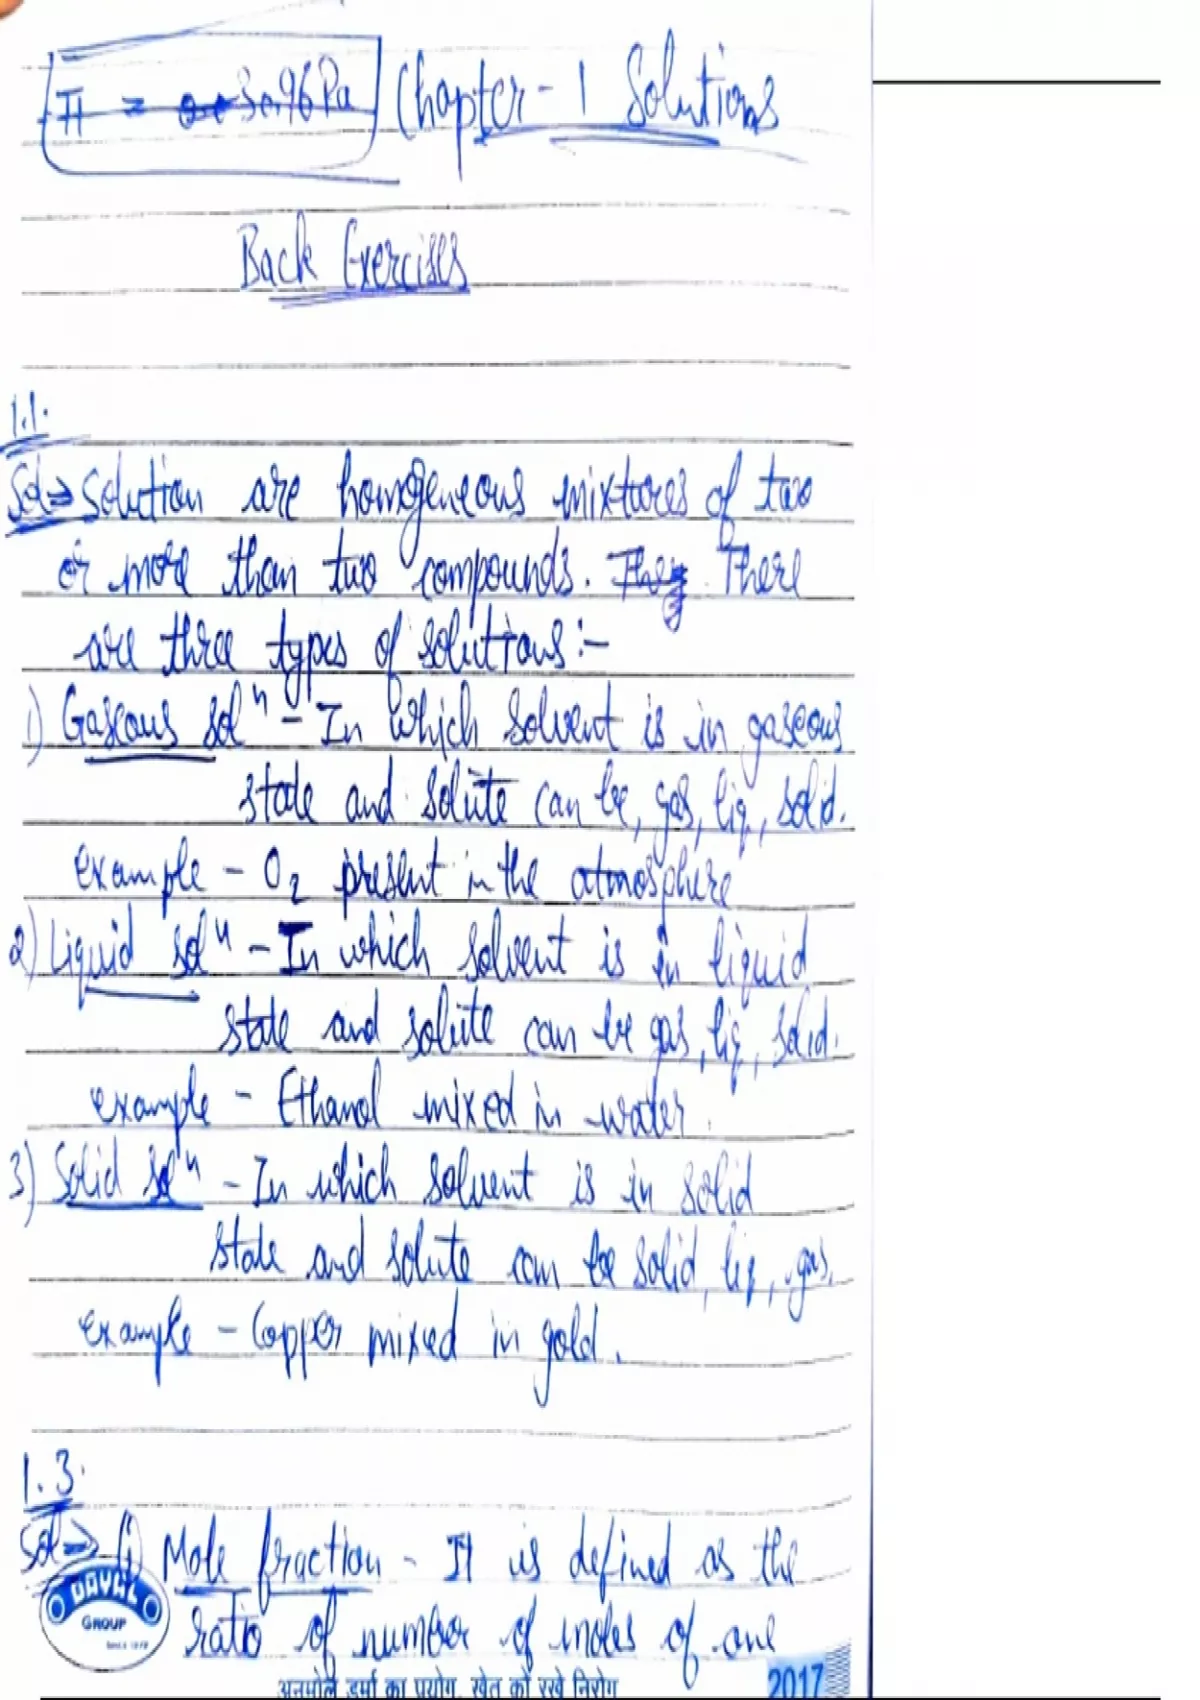 π = 30.96 Pa Chapter - 1 Solutions
Back Exercises
1.1.
Sol⇒ Solution are homogeneous mixtures of two
or more than two compounds. They There
are three types of solutions :-
1) Gaseous solⁿ - In which solvent is in gaseous
state and solute can be, gas, liq, solid.
example - O₂ present in the atmosphere
2) Liquid solⁿ - In which solvent is in liquid
state and solute can be gas, liq, solid.
example - Ethanol mixed in water.
3) Solid solⁿ - In which solvent is in solid
state and solute can be solid, liq, gas.
example - Copper mixed in gold.
1.3.
Sol⇒ (i) Mole fraction - It is defined as the
ratio of number of moles of one
DAYAL
GROUP
अनमोल डर्मा का प्रयोग, खेत को रखे निरोग
2017